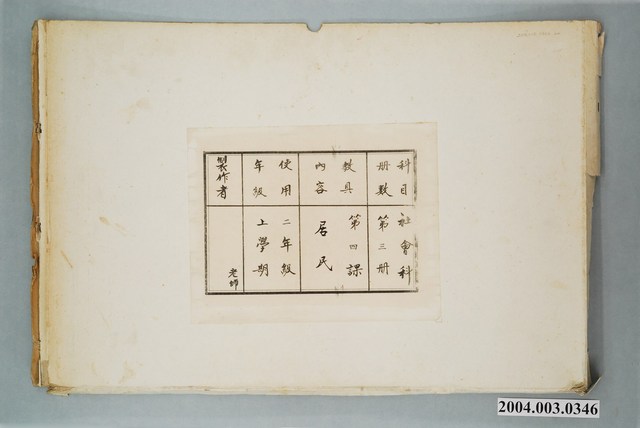 科目
冊數
社會科
第三冊
教具
內容
第四課
居民
使用
年級
二年級
上學期
製作者
老師
2004.003.0346